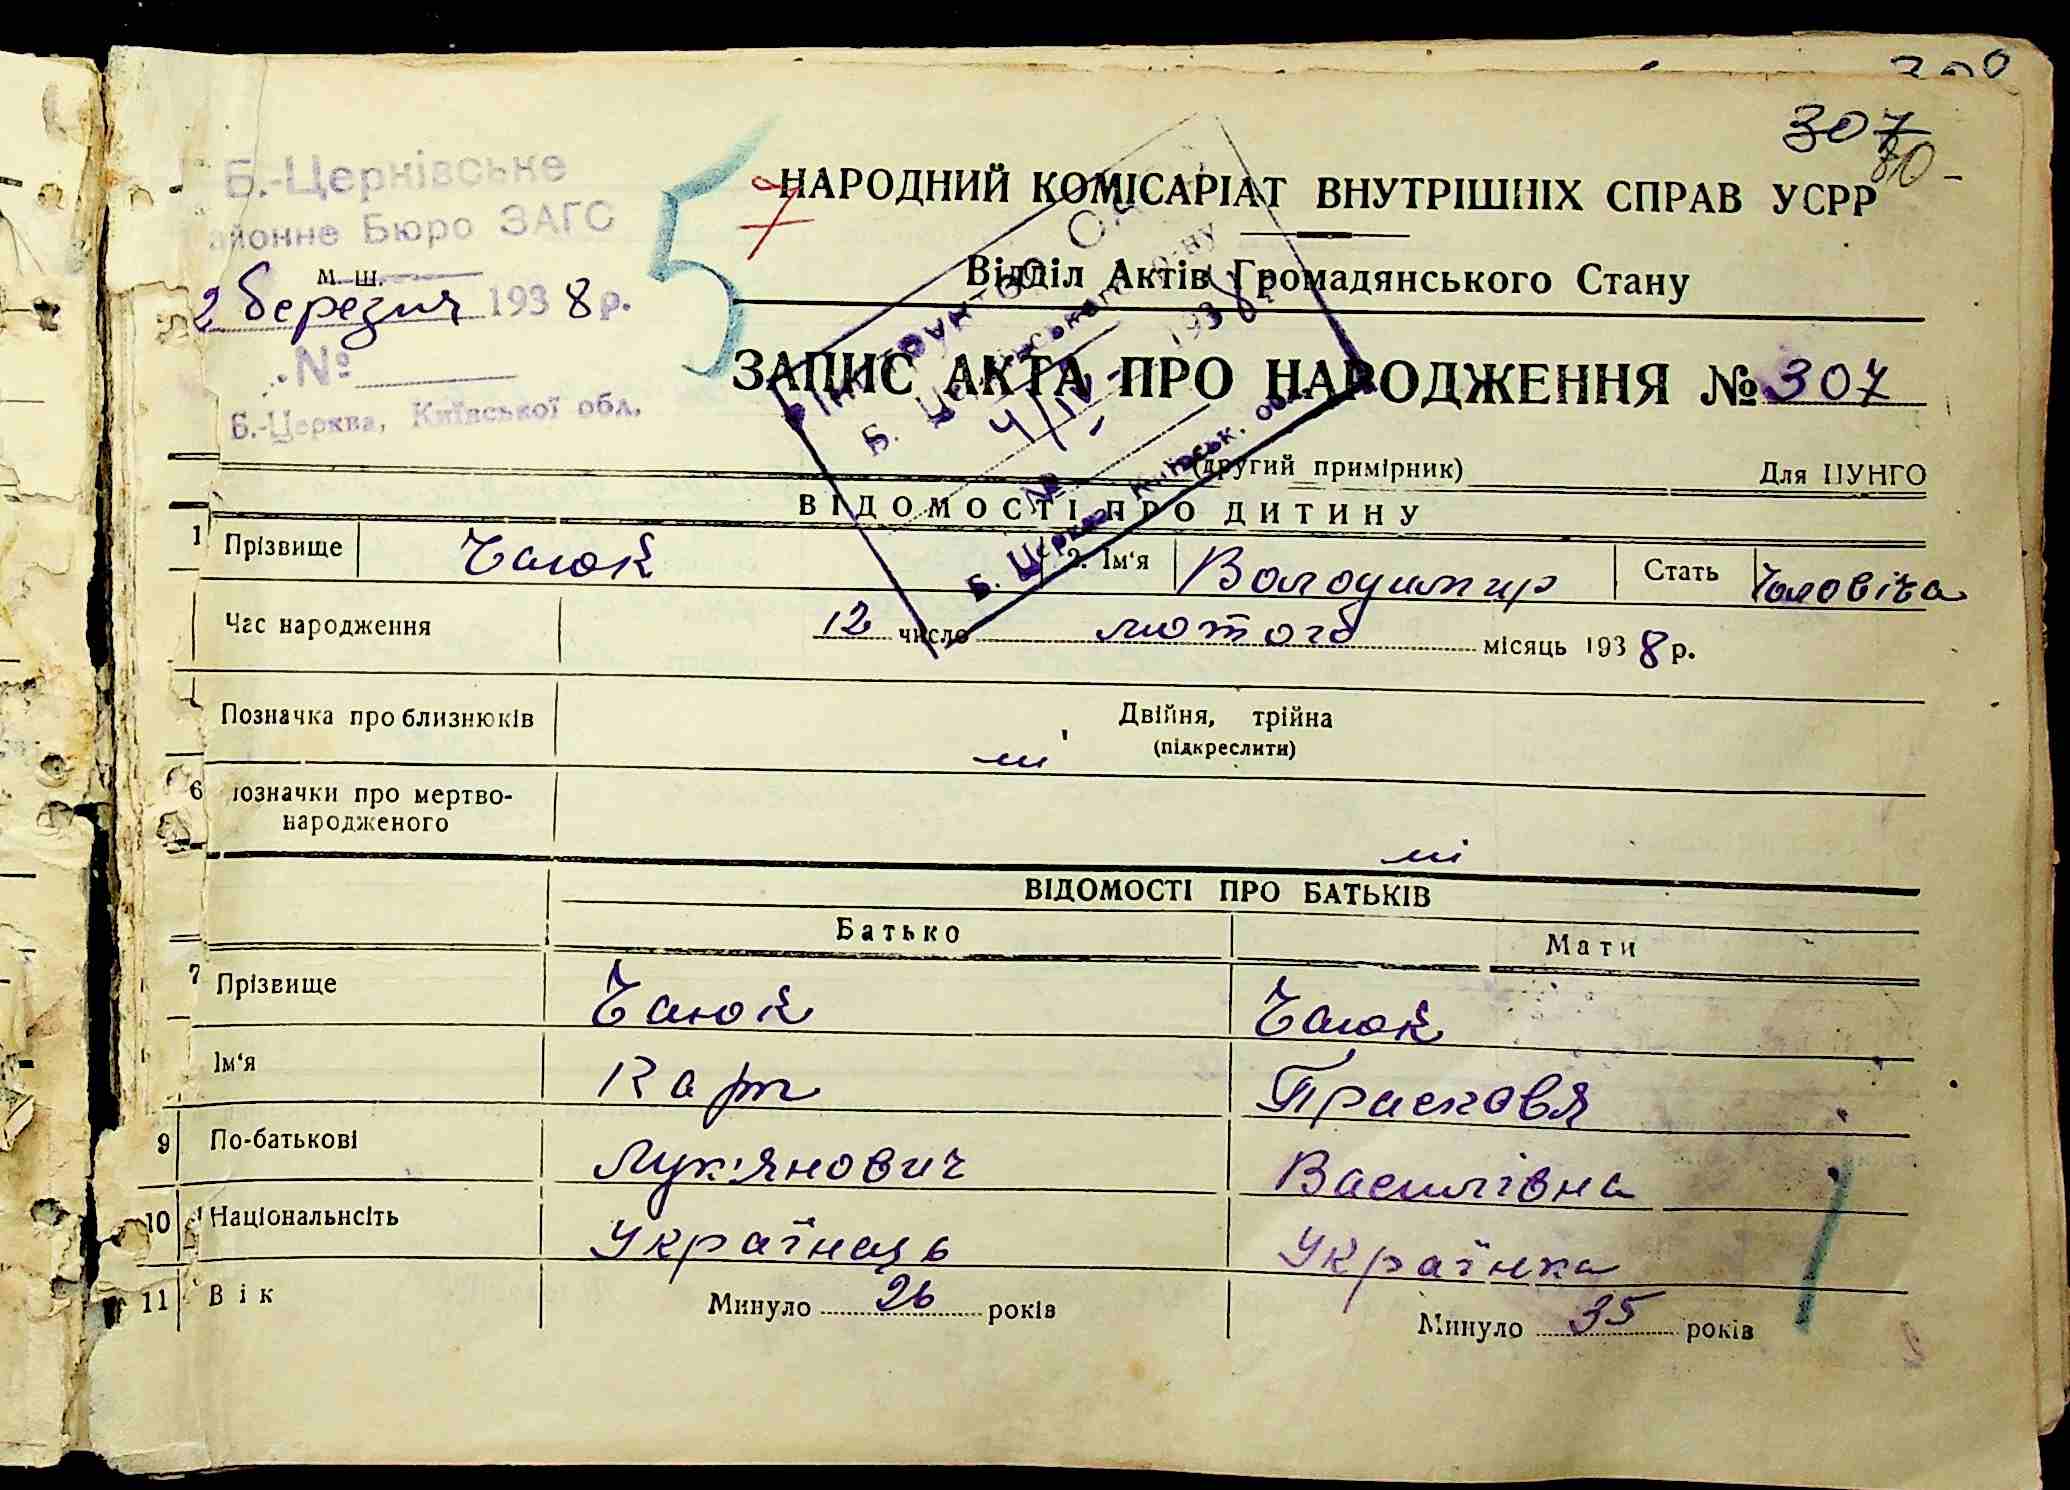 307
80
Б.-Церківське
районне Бюро ЗАГС
м. ш.
2 березня 1938 р.
№
Б.-Церква, Київської обл.
5
НАРОДНИЙ КОМІСАРІАТ ВНУТРІШНІХ СПРАВ УСРР
Відділ Актів Громадянського Стану
ЗАПИС АКТА ПРО НАРОДЖЕННЯ № 307
(другий примірник) Для ЦУНГО
Б. Церква Київськ. обл.
ВІДОМОСТІ ПРО ДИТИНУ
1 Прізвище Чаюк 2. Ім'я Володимир Стать Чоловіча
Час народження 12 число лютого місяць 1938 р.
Позначка про близнюків Двійня, трійна
(підкреслити)
ні
6 позначки про мертво-
народженого
ні
ВІДОМОСТІ ПРО БАТЬКІВ
Батько Мати
7 Прізвище Чаюк Чаюк
Ім'я Карп Прасковя
9 По-батькові Лук'янович Василівна
10 Національнсіть Українець Українка
11 Вік Минуло 26 років Минуло 35 років